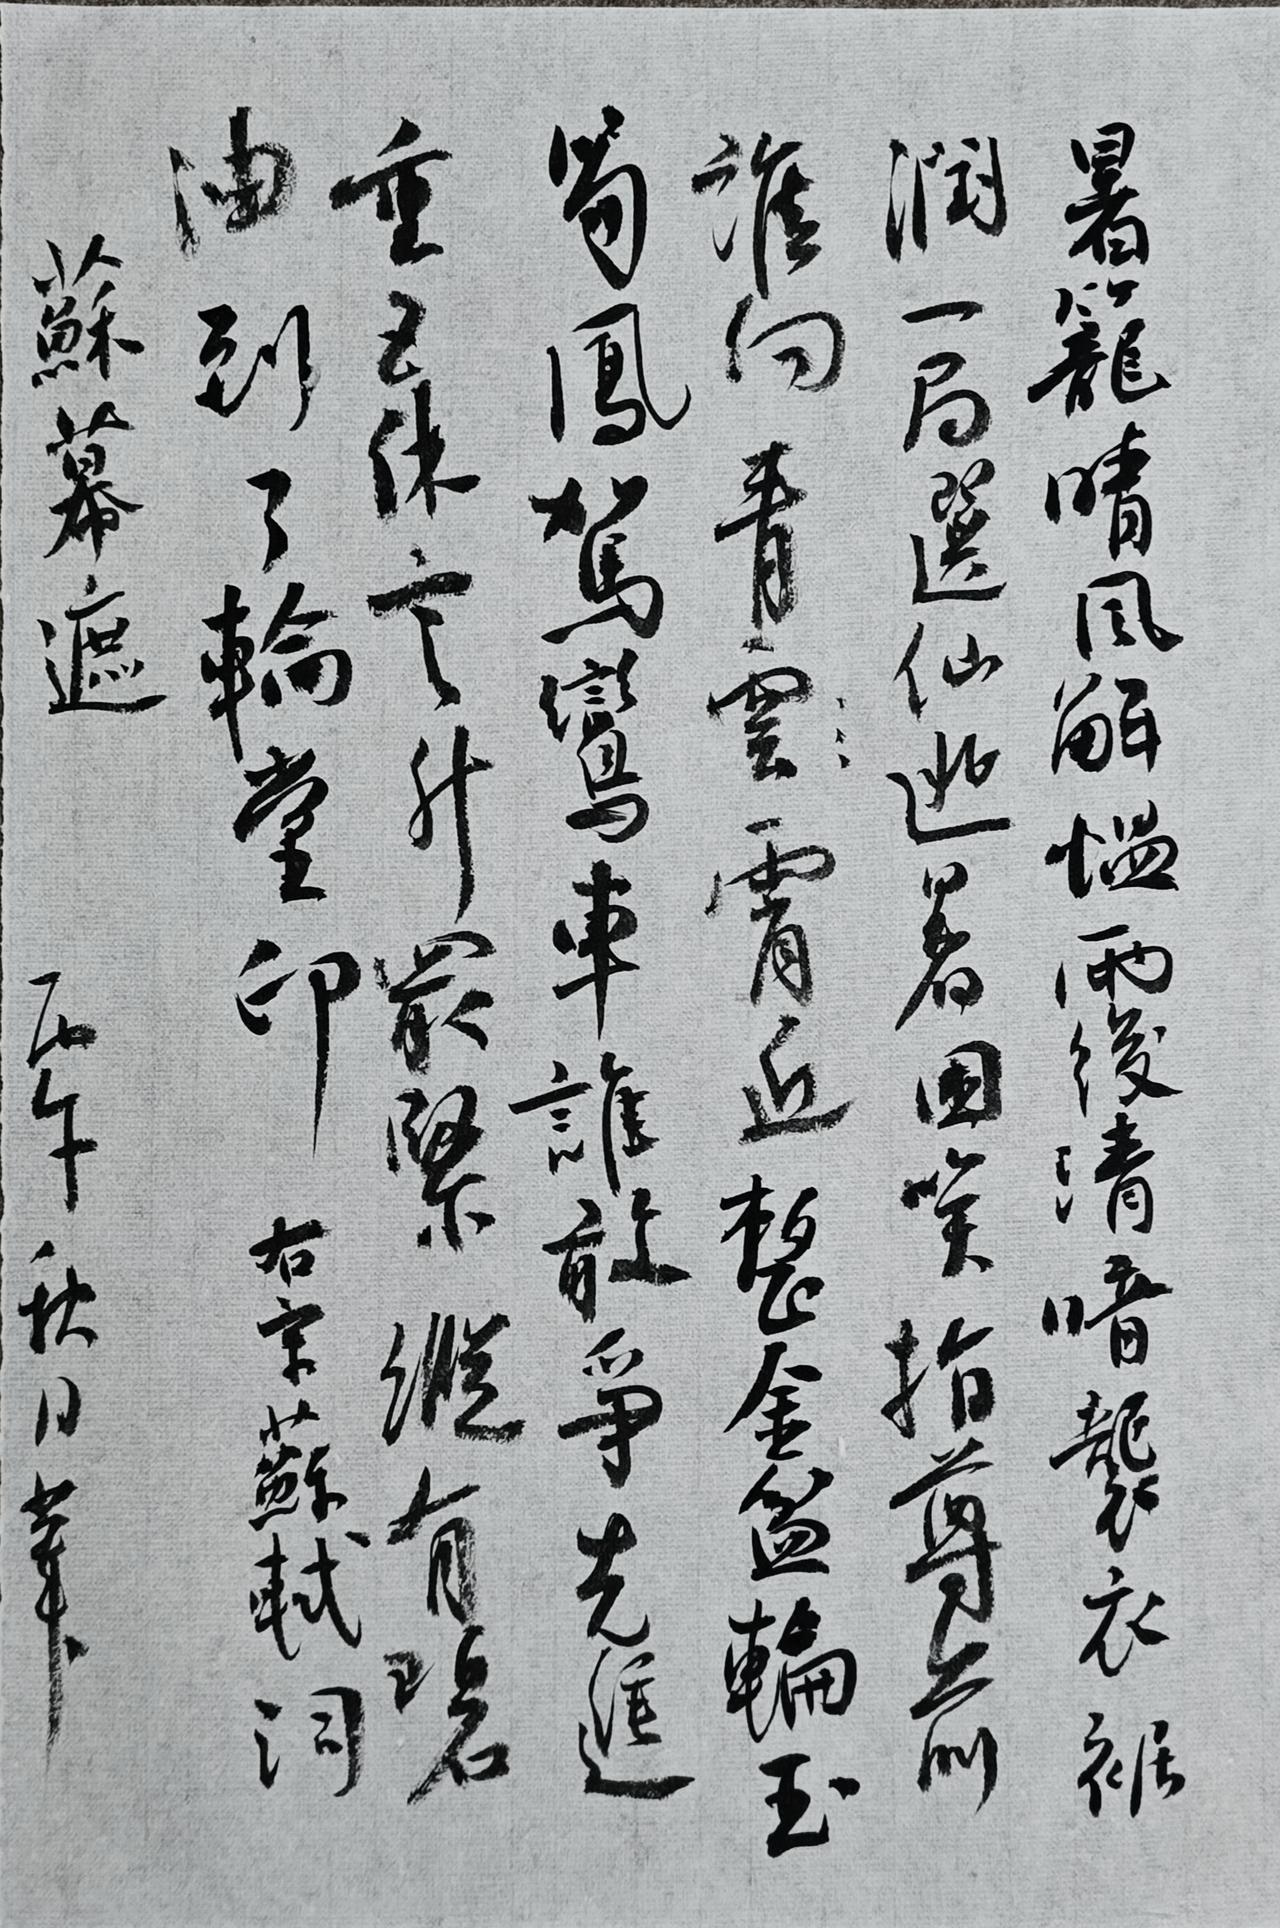 暑籠晴風解慍雨後清暗襲衣裾
潤一局選仙逃暑困笑指尊前
誰向青雲霄近整金盆輪玉
筍鳳駕鸞車誰敢爭先進
重五休言升最緊縱有碧
油到了輪堂印 右宋蘇軾詞
蘇幕遮 丙午秋日